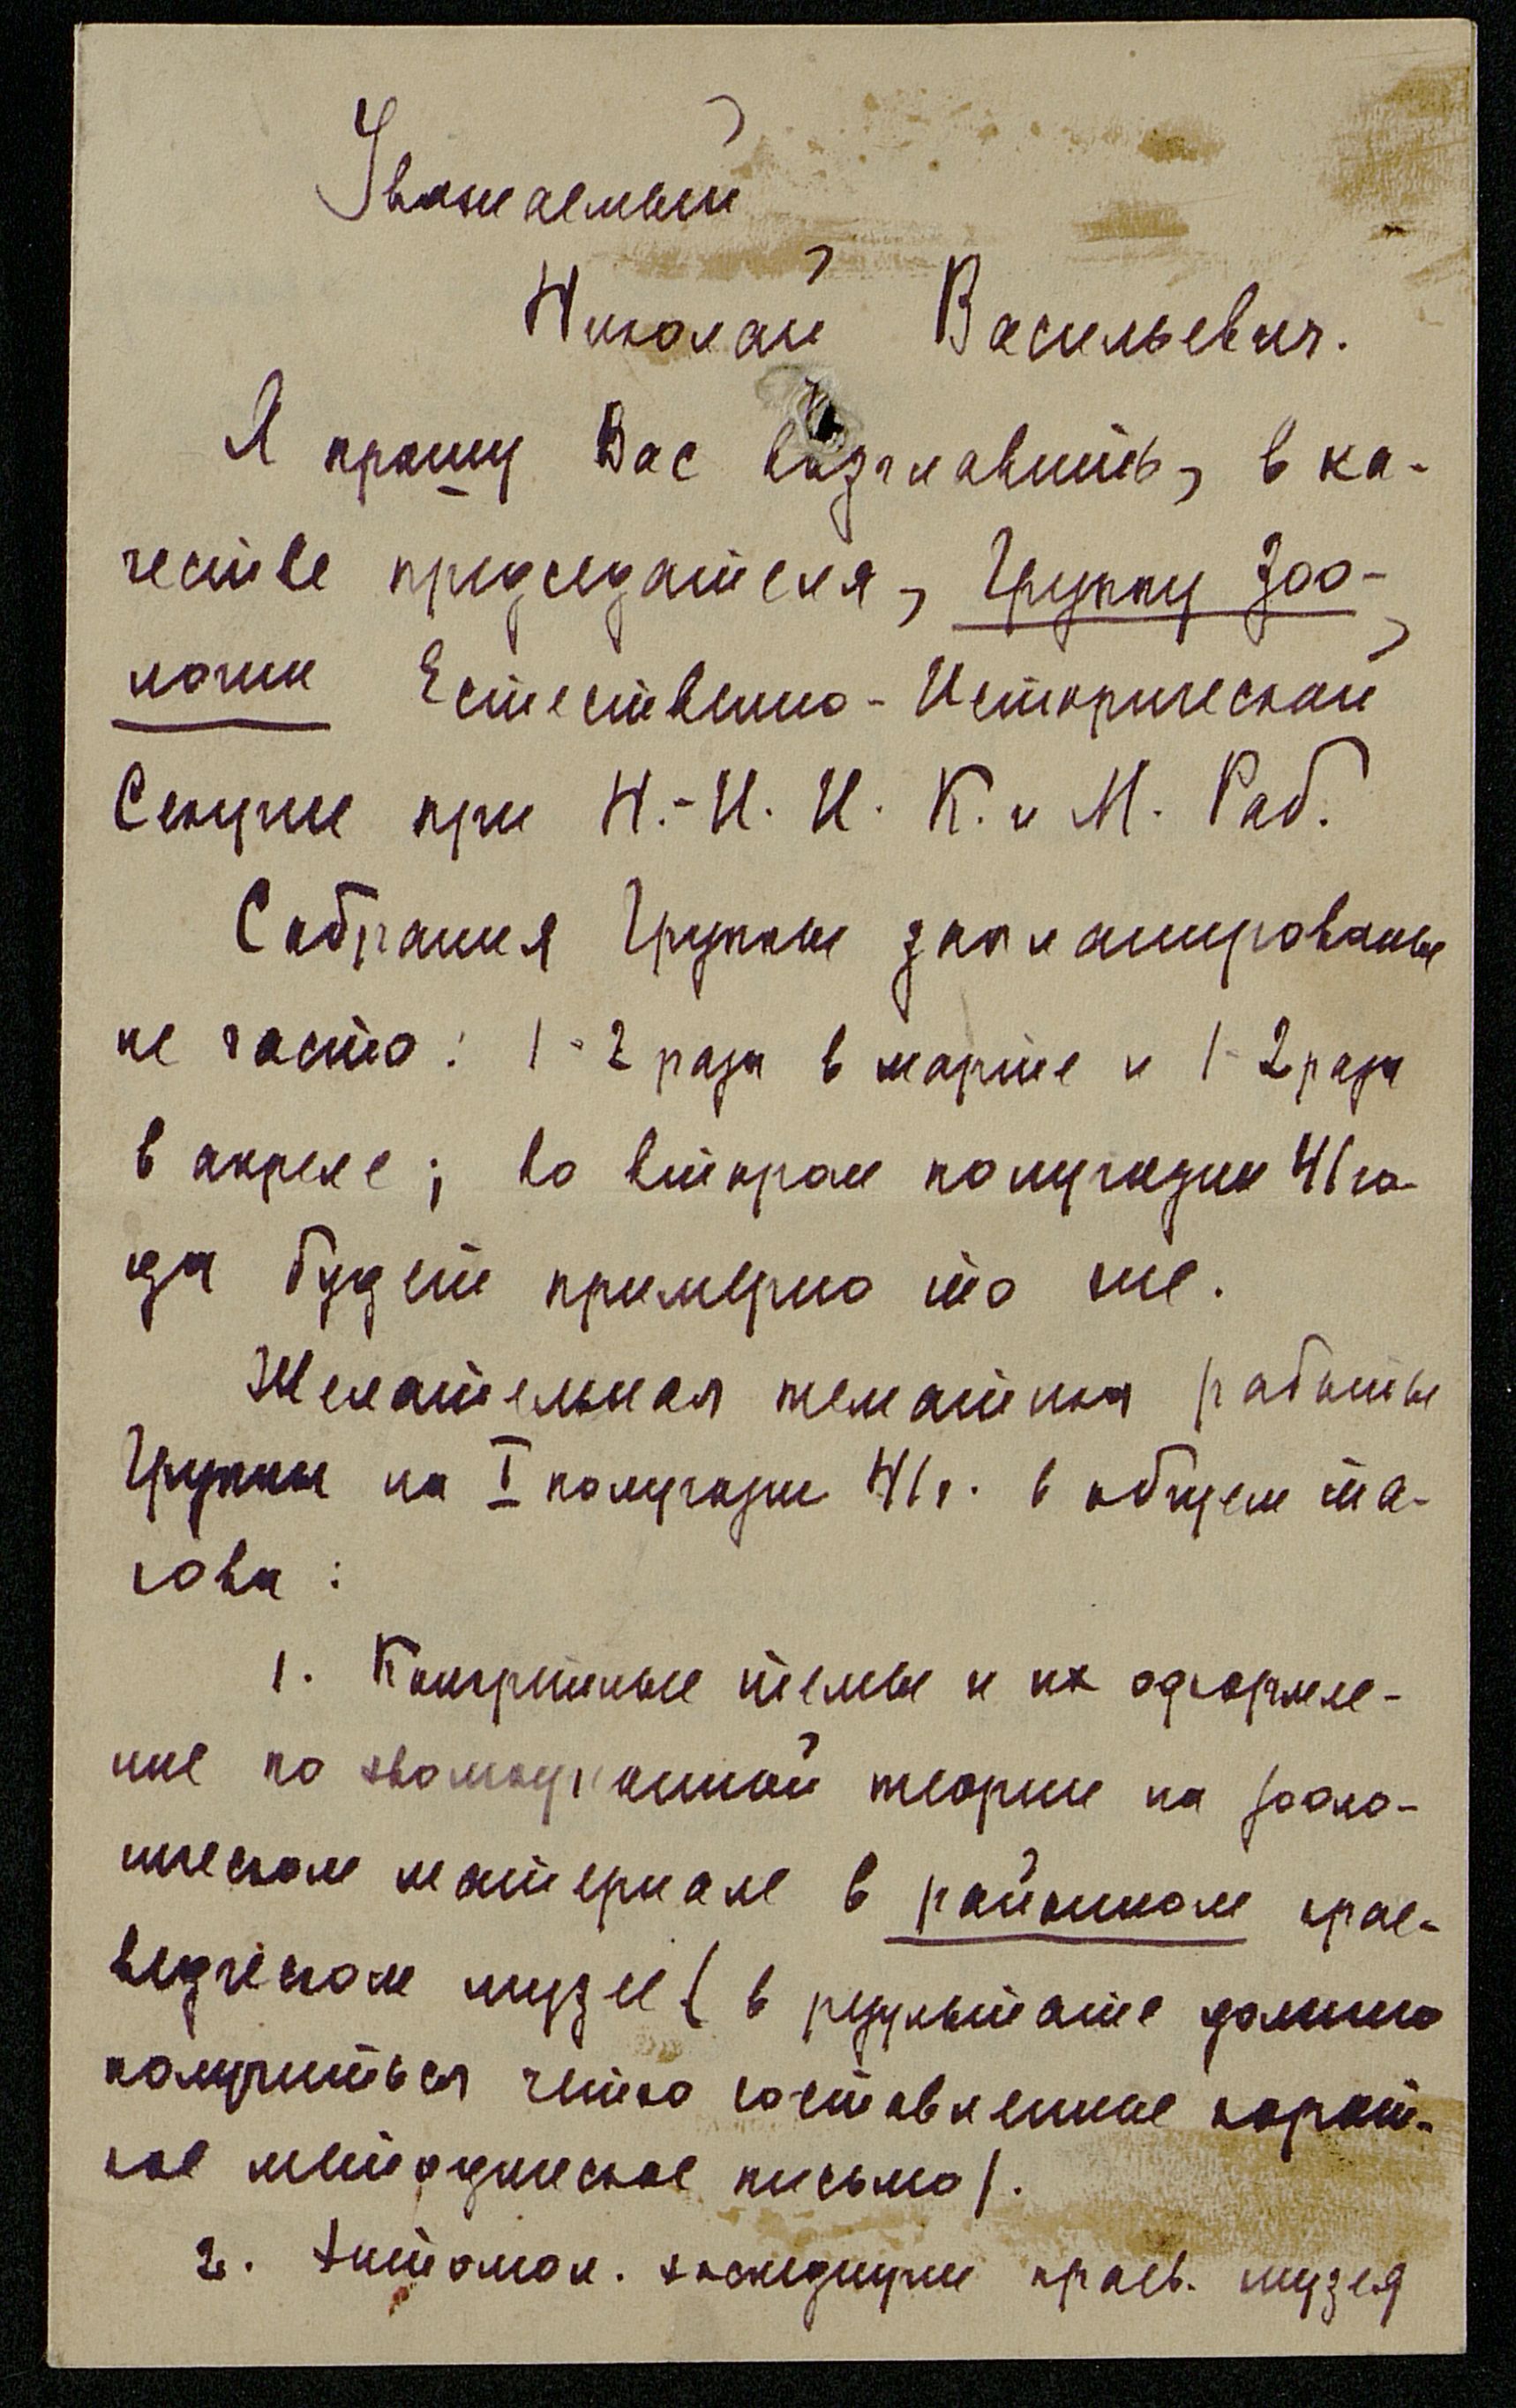 Уважаемый
Николай Васильевич.
Я прошу Вас возглавить, в ка-
честве председателя, Группу Зоо-
логии Естественно-Исторической
Секции при Н.-И. И. К. и М. Раб.
Собрания Группы запланированы
не часто: 1-2 раза в марте и 1-2 раза
в апреле; во втором полугодии 41 го-
да будет примерно то же.
Желательная тематика работы
Группы на I полугодие 41 г. в общем та-
кова:
1. Конкретные темы и их оформле-
ние по эволюционной теории на зооло-
гическом материале в районном крае-
ведческом музее (в результате должно
получиться четко составленное корот-
кое методическое письмо).
2. Энтомол. экспедиции краев. музея